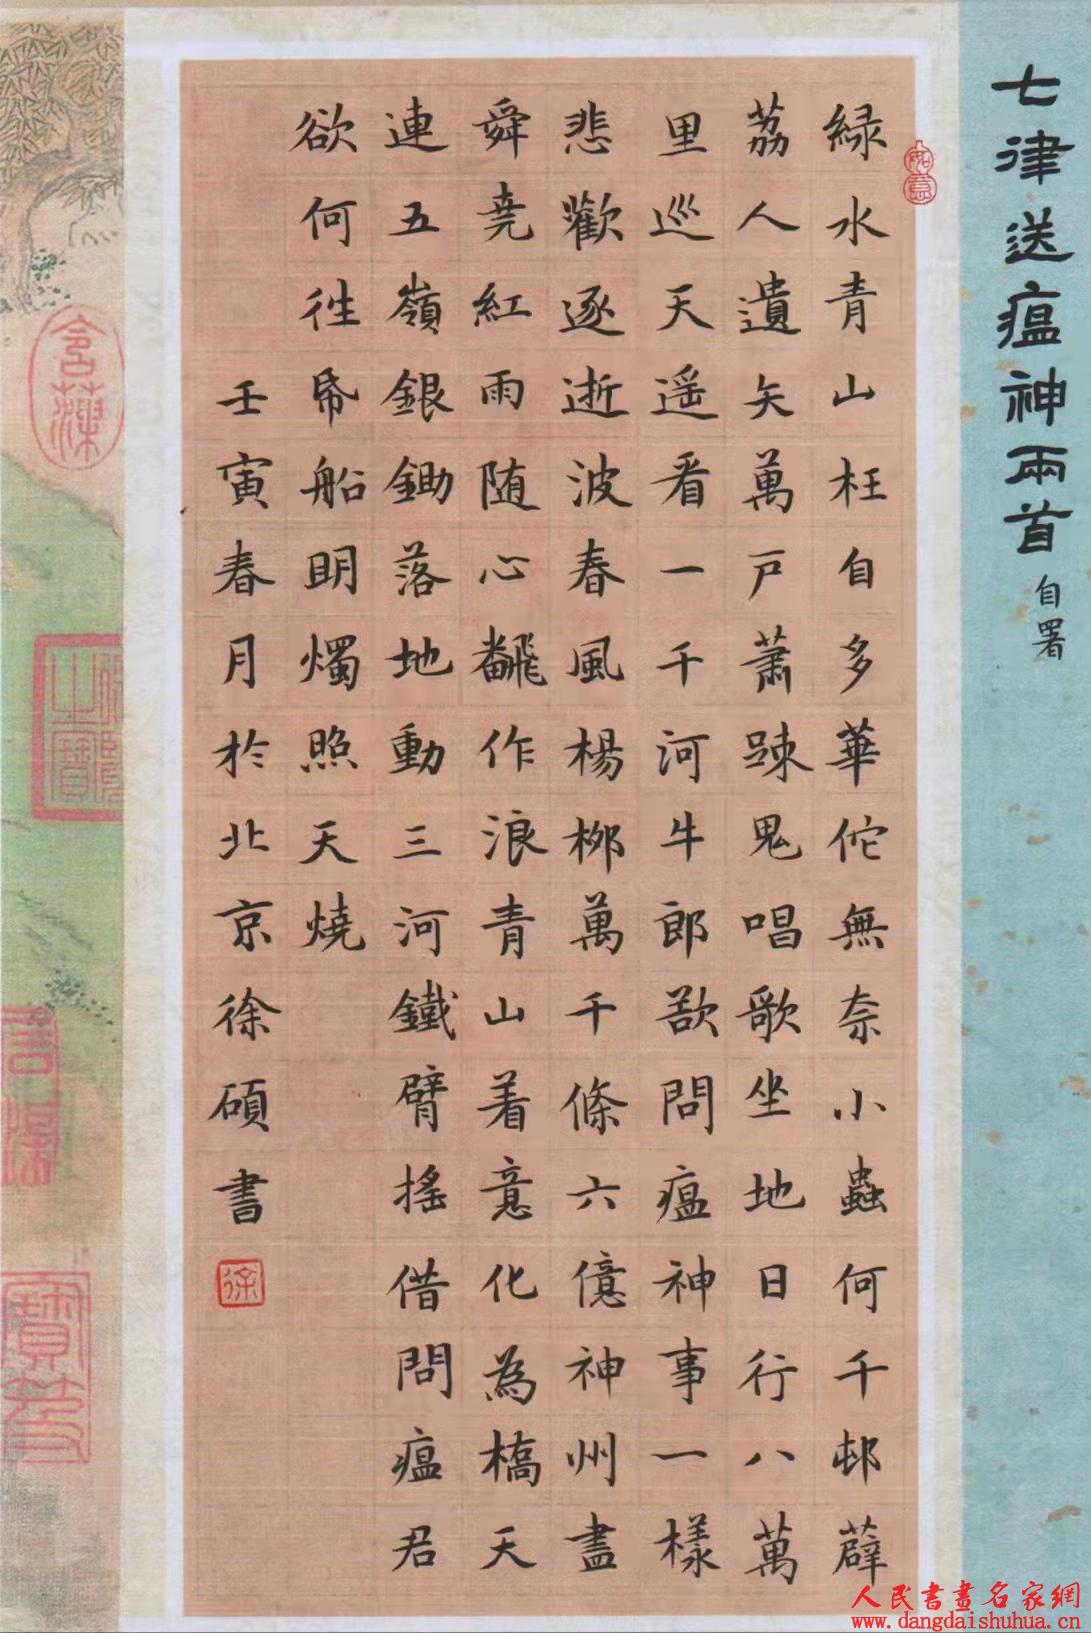 七律送瘟神兩首
自署
如意
緑水青山枉自多華佗無奈小蟲何千邨薜
荔人遺矢萬戸蕭踈鬼唱歌坐地日行八萬
里巡天遥看一千河牛郎欲問瘟神事一樣
悲歡逐逝波春風楊栁萬千條六億神州盡
舜尭紅雨随心飜作浪青山着意化為橋天
連五嶺銀鋤落地動三河鐵臂摇借問瘟君
欲何往帋船眀燭照天燒
壬寅春月於北京徐碩書
徐
人民書畫名家網
www.dangdaishuhua.cn